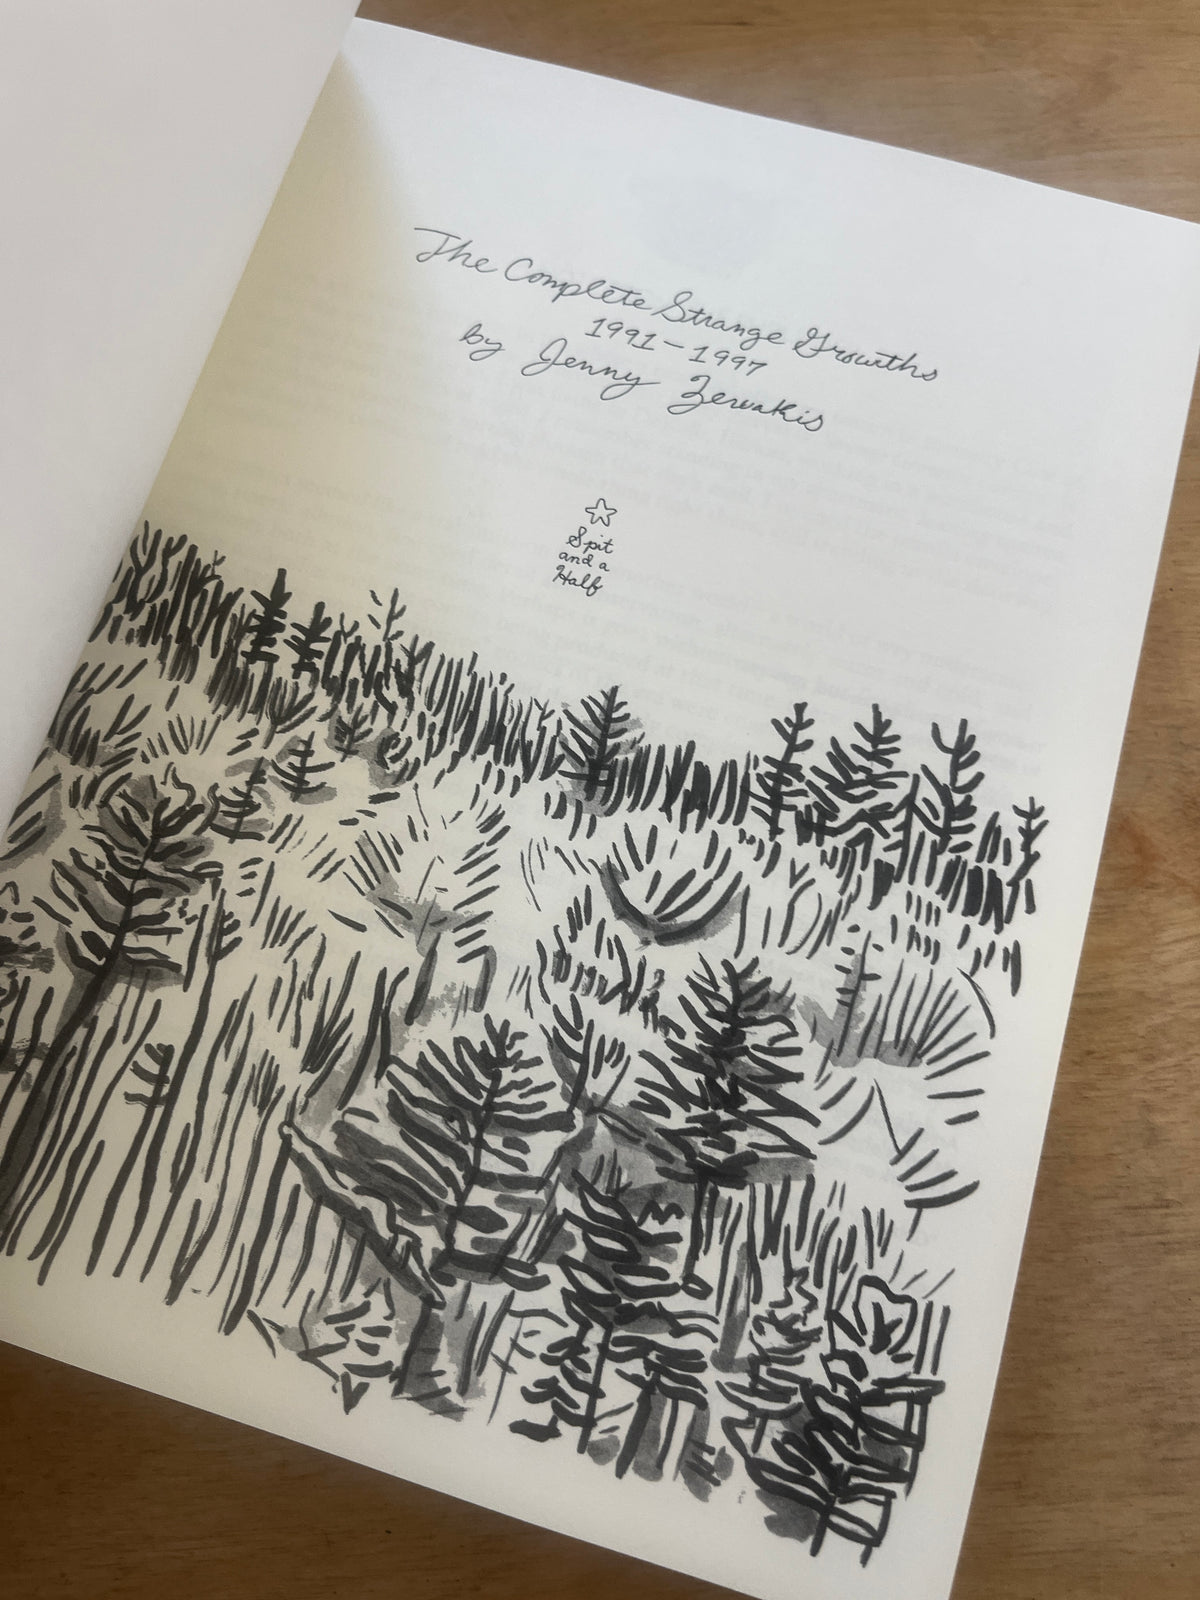 The Complete Strange Growths
1991-1997
by Jenny Zervakis
Spit
and a
Half